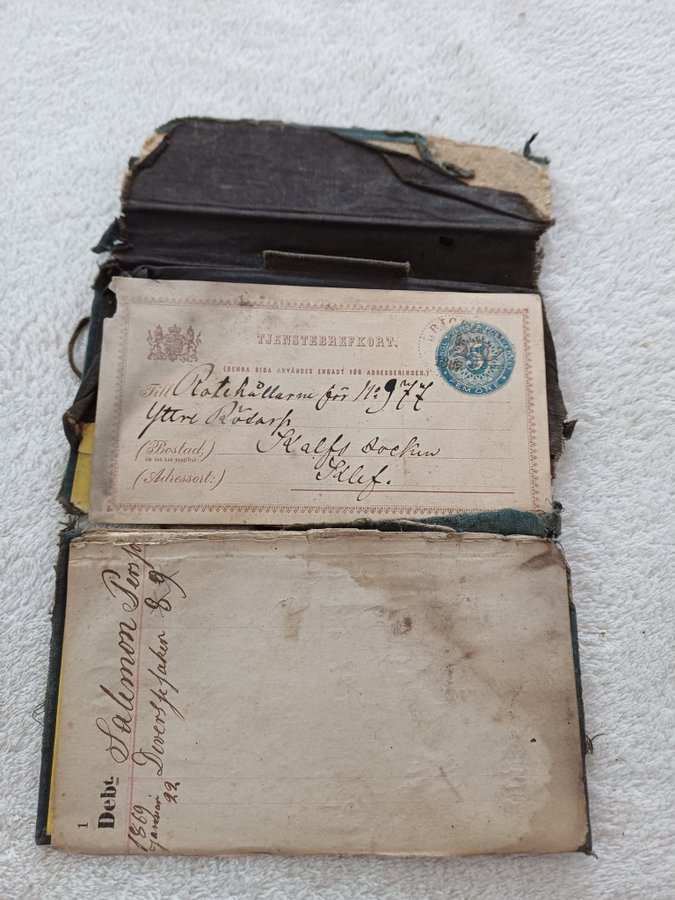 TJENSTEBREFKORT.
(DENNA SIDA ANVÄNDES ENDAST FÖR ADRESSERINGEN.)
Till Rotehållarne för No 977
Yttre Rödarp
(Bostad,) Kalfs socken
om den kan uppgifvas
(Adressort:) Klef.
1
Debt. Salemon Persso
1869
Januari 22 Diversse saker 8 9